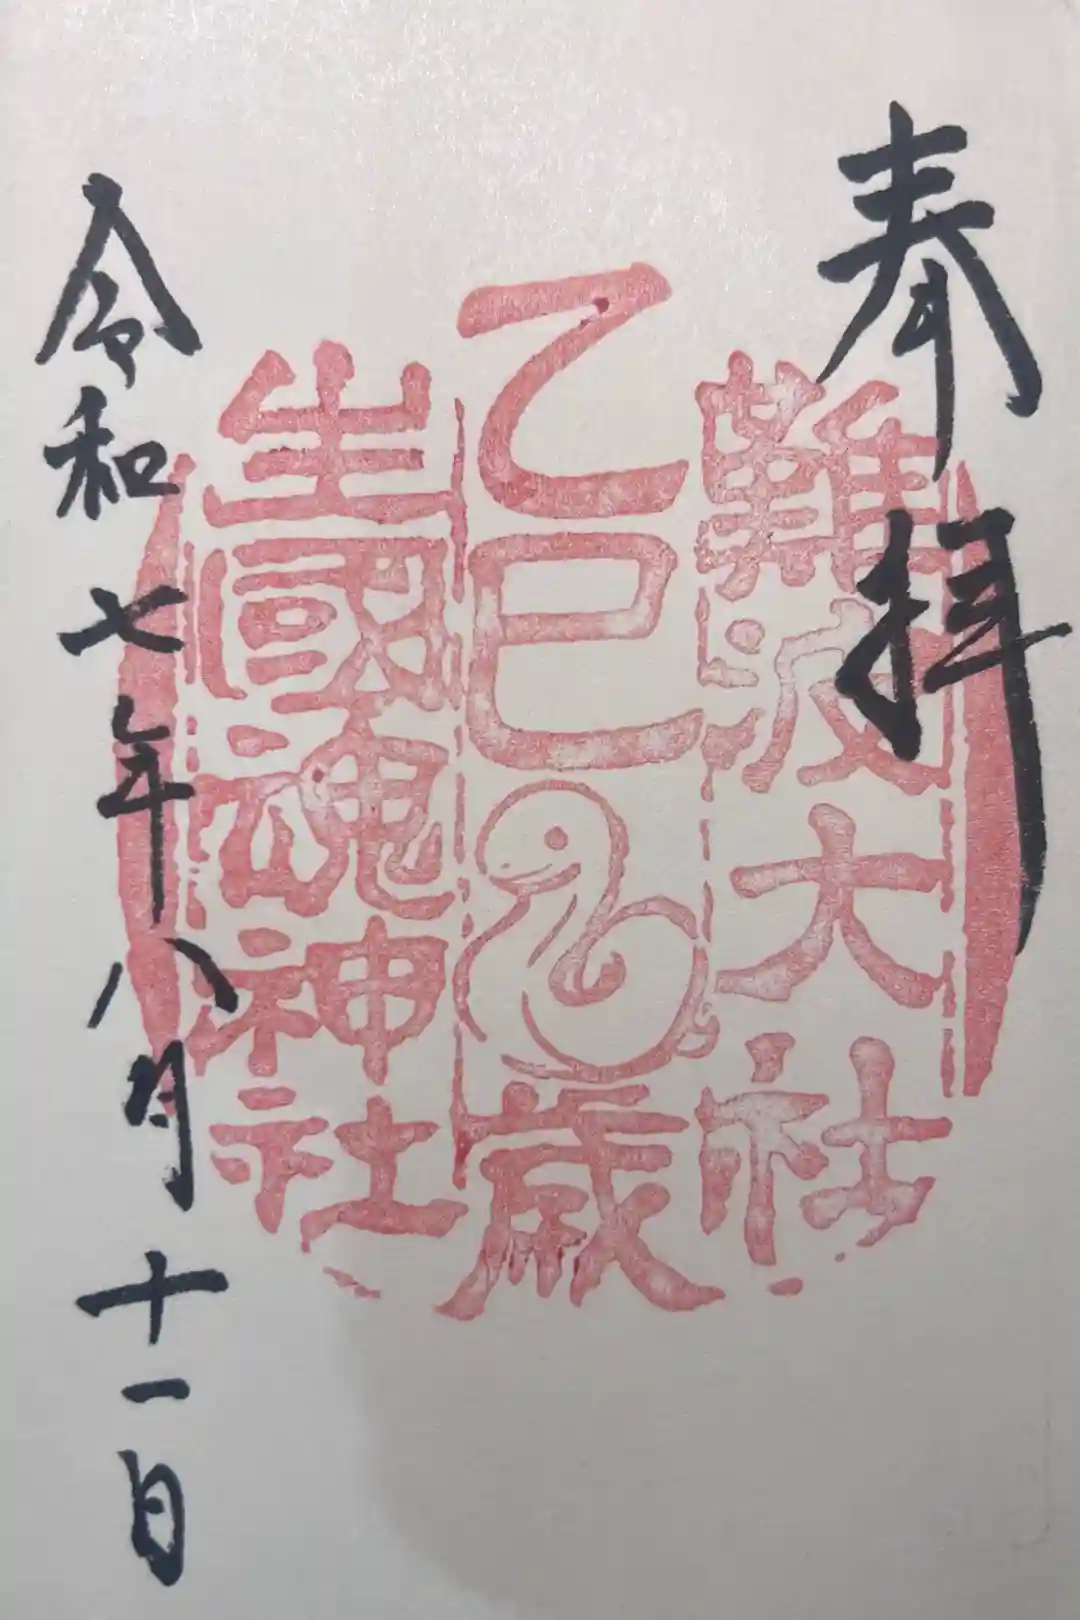 奉拝
難波大社
乙巳歳
生國魂神社
令和七年八月十一日